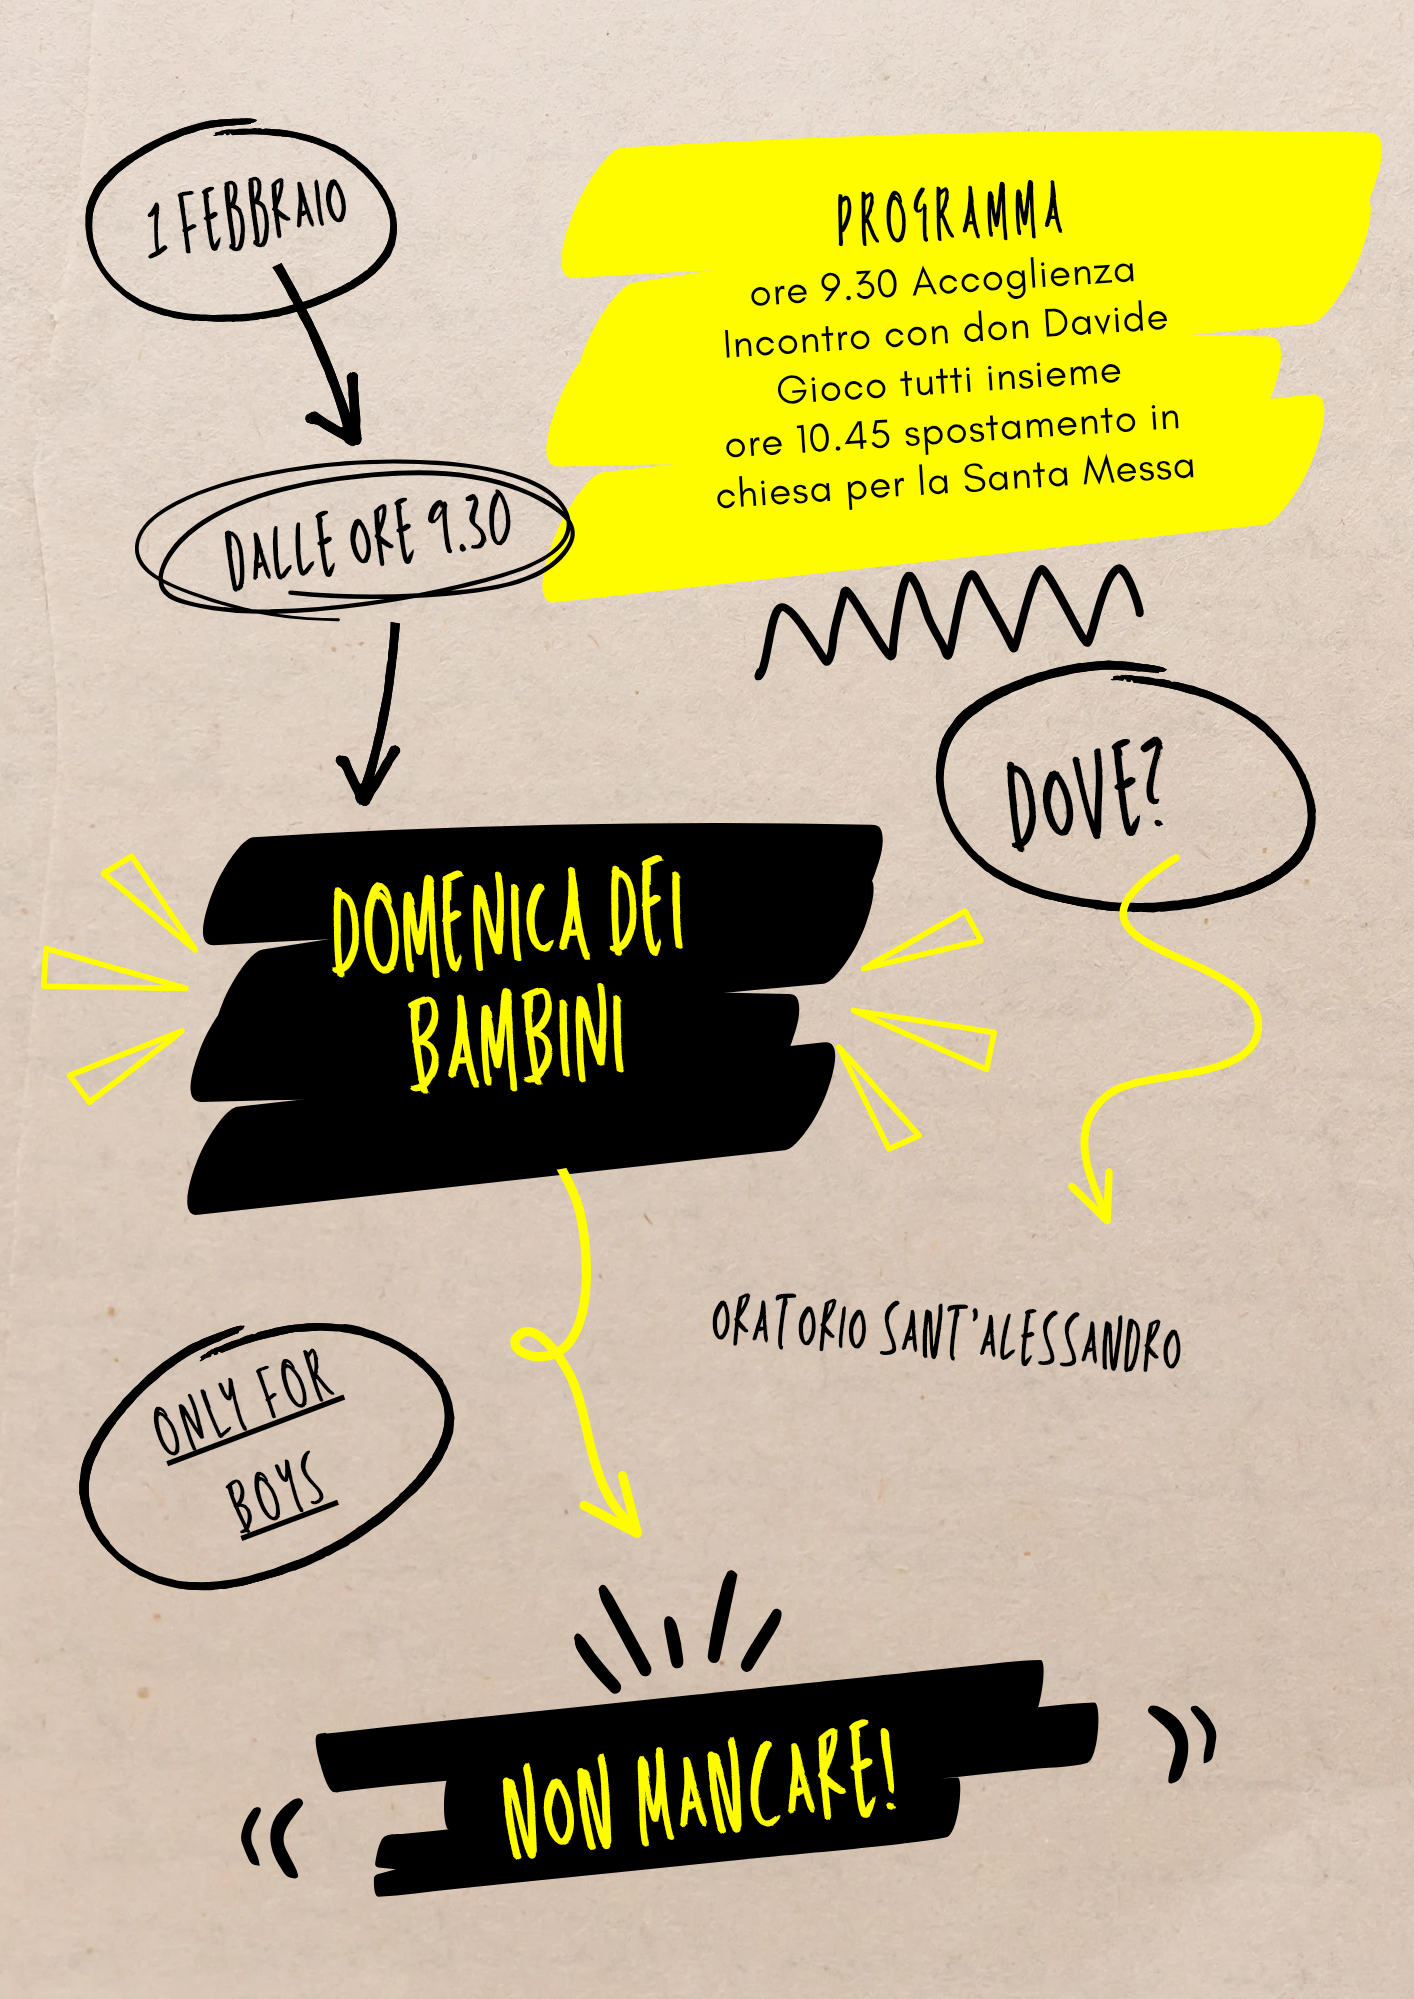 1 FEBBRAIO
PROGRAMMA
ore 9.30 Accoglienza
Incontro con don Davide
Gioco tutti insieme
ore 10.45 spostamento in
chiesa per la Santa Messa
DALLE ORE 9.30
DOVE?
DOMENICA DEI
BAMBINI
ORATORIO SANT'ALESSANDRO
ONLY FOR
BOYS
NON MANCARE!